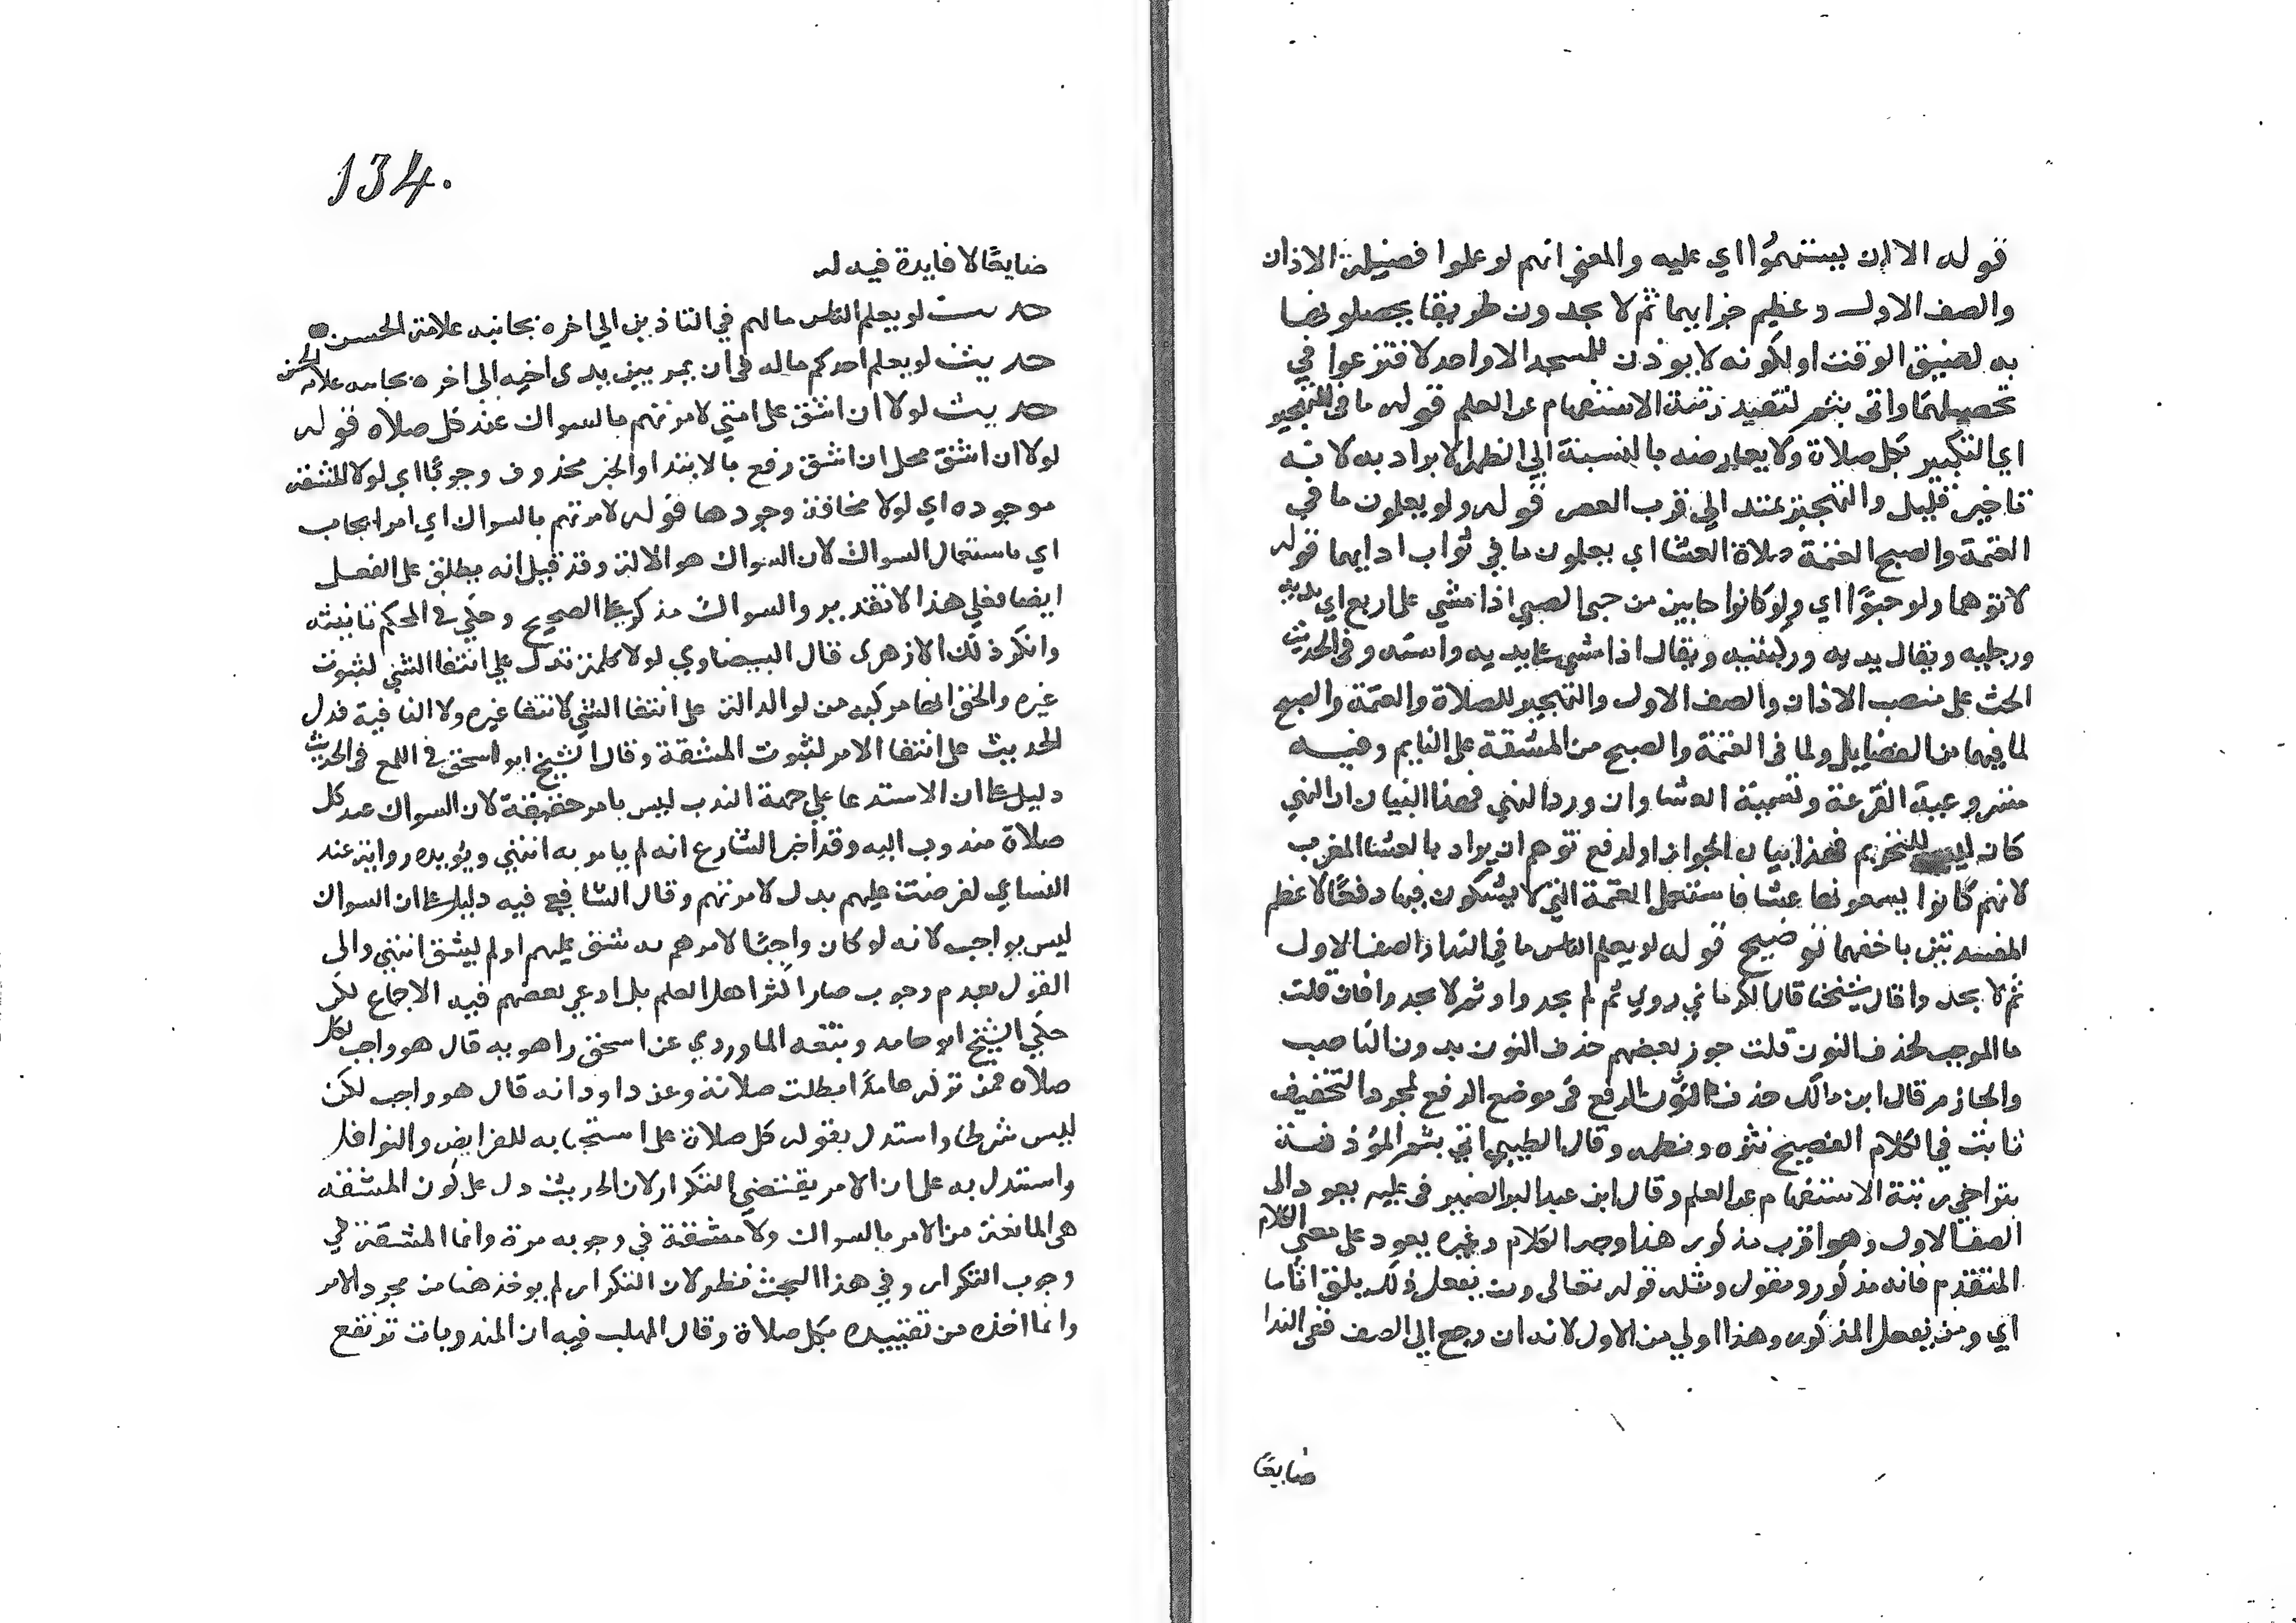 قوله الا ان يستهموا اي عليه والمعني انهم لو علموا فضيلة الاذان
والصف الاول وعظيم جزايهما ثم لا يجدون طريقا يحصلونهما
به لضيق الوقت او لكونه لا يوذن للمسجد الا واحد لاقترعوا في
تحصيلهما واتى بثم لتقييد رتبة الاستفهام عن العلم قوله ما في التهجير
اي التبكير بكل صلاة ولا يعارضه بالنسبة الي الظهر الابراد به لانه
تاخير قليل والتهجير يمتد الي قرب العصر قوله ولو يعلمون ما في
العتمة والصبح العتمة صلاة العشا اي يعلمون ما في ثواب ادايهما قوله
لاتوهما ولو حبوًا اي ولو كانوا حابين من حبي الصبي اذا مشي على اربع اي يديه
ورجليه ويقال يديه وركبتيه ويقال اذا مشي على يديه واسته وفي الحديث
الحث على منصب الاذان والصف الاول والتهجير للصلاة والعتمة والصبح
لما فيهما من الفضايل ولما في العتمة والصبح من المشقة على النايم وفيه
مشروعية القرعة وتسمية العشا وان ورد النهي فهذا لبيان ان النهي
كان ليس للتحريم فهذا بيان الجواز او لدفع توهم ان يراد بالعشا المغرب
لانهم كانوا يسمونها عشا فاستعمل العتمة التي لا يشكون فيها دفعًا لاعظم
المفسدتين باخفهما توضيح قوله لو يعلم الناس ما في الندا والصف الاول
ثم لا يجدوا قال شيخنا قال الكرماني روي ثم لم يجدوا وثم لا يجدوا فان قلت
ما الموجب لحذف النون قلت جوز بعضهم حذف النون بدون الناصب
والجازم قال ابن مالك حذف نون الرفع في موضع الرفع لمجرد التخفيف
ثابت في الكلام الفصيح نثره ونظمه وقال الطيبي اتي بثم المؤذنة
بتراخي رتبة الاستفهام عن العلم وقال ابن عبد البر الضمير في عليه يعود الى
الصف الاول وهو اقرب مذكور هذا وجه الكلام وغيره يعود على معني الكلام
المتقدم فانه مذكور ومقول ومثله قوله تعالى ومن يفعل ذلك يلق اثاما
اي ومن يفعل المذكور وهذا اولي من الاول لانه ان رجع الي الصف بقى الندا
ضايعًا
134.
ضايعًا لا فايدة فيه له
حديث لو يعلم الناس ما لهم في التاذين الي اخره بجانبه علامة الحسن
حديث لو يعلم احدكم ماله في ان يمر بين يدي اخيه الي اخره بجانبه علامة الحسن
حديث لولا ان اشق على امتي لامرتهم بالسواك عند كل صلاه قوله
لولا ان اشق محل ان اشق رفع بالابتدا والخبر محذوف وجوبًا اي لولا المشقة
موجوده اي لولا مخافة وجودها قوله لامرتهم بالسواك اي امر ايجاب
اي باستعمال السواك لان السواك هو الالة وقد قيل انه يطلق على الفعل
ايضا فعلي هذا لا تقدير والسواك مذكر على الصحيح وحكي في المحكم تانيثه
وانكر ذلك الازهري قال البيضاوي لولا كلمة تدل علي انتفا الشي لثبوت
غيره والحق انها مركبه من لو الدالة على انتفا الشي لانتفا غيره ولا النافية فدل
الحديث على انتفا الامر لثبوت المشقة وقال الشيخ ابو اسحق في اللمع في الحديث
دليل على ان الاستدعا علي جهة الندب ليس بامر حقيقة لان السواك عند كل
صلاة مندوب اليه وقد اخبر الشارع انه لم يامر به انتهي ويؤيده رواية عند
النساي لفرضت عليهم بدل لامرتهم وقال الشافعي فيه دليل على ان السواك
ليس بواجب لانه لو كان واجبًا لامرهم به شق عليهم او لم يشق انتهي والى
القول بعدم وجوبه صار اكثر اهل العلم بل ادعي بعضهم فيه الاجماع لكن
حكي الشيخ ابو حامد وتبعه الماوردي عن اسحق راهويه قال هو واجب لكل
صلاه فمن تركه عامدًا بطلت صلاته وعن داود انه قال هو واجب لكن
ليس شرطا واستدل بقوله كل صلاة على استحبابه للفرايض والنوافل
واستدل به على ان الامر يقتضي التكرار لان الحديث دل على كون المشقه
هي المانعة من الامر بالسواك ولا مشقة في وجوبه مرة وانما المشقة في
وجوب التكرار وفي هذا البحث نظر لان التكرار لم يوخذ هنا من مجرد الامر
وانما اخذه من تقييده بكل صلاة وقال المهلب فيه ان المندوبات ترتفع